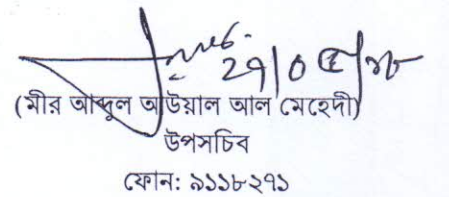 ২৭|০৫|১৮
(মীর আব্দুল আউয়াল আল মেহেদী)
উপসচিব
ফোন: ৯১১৮-২৭১